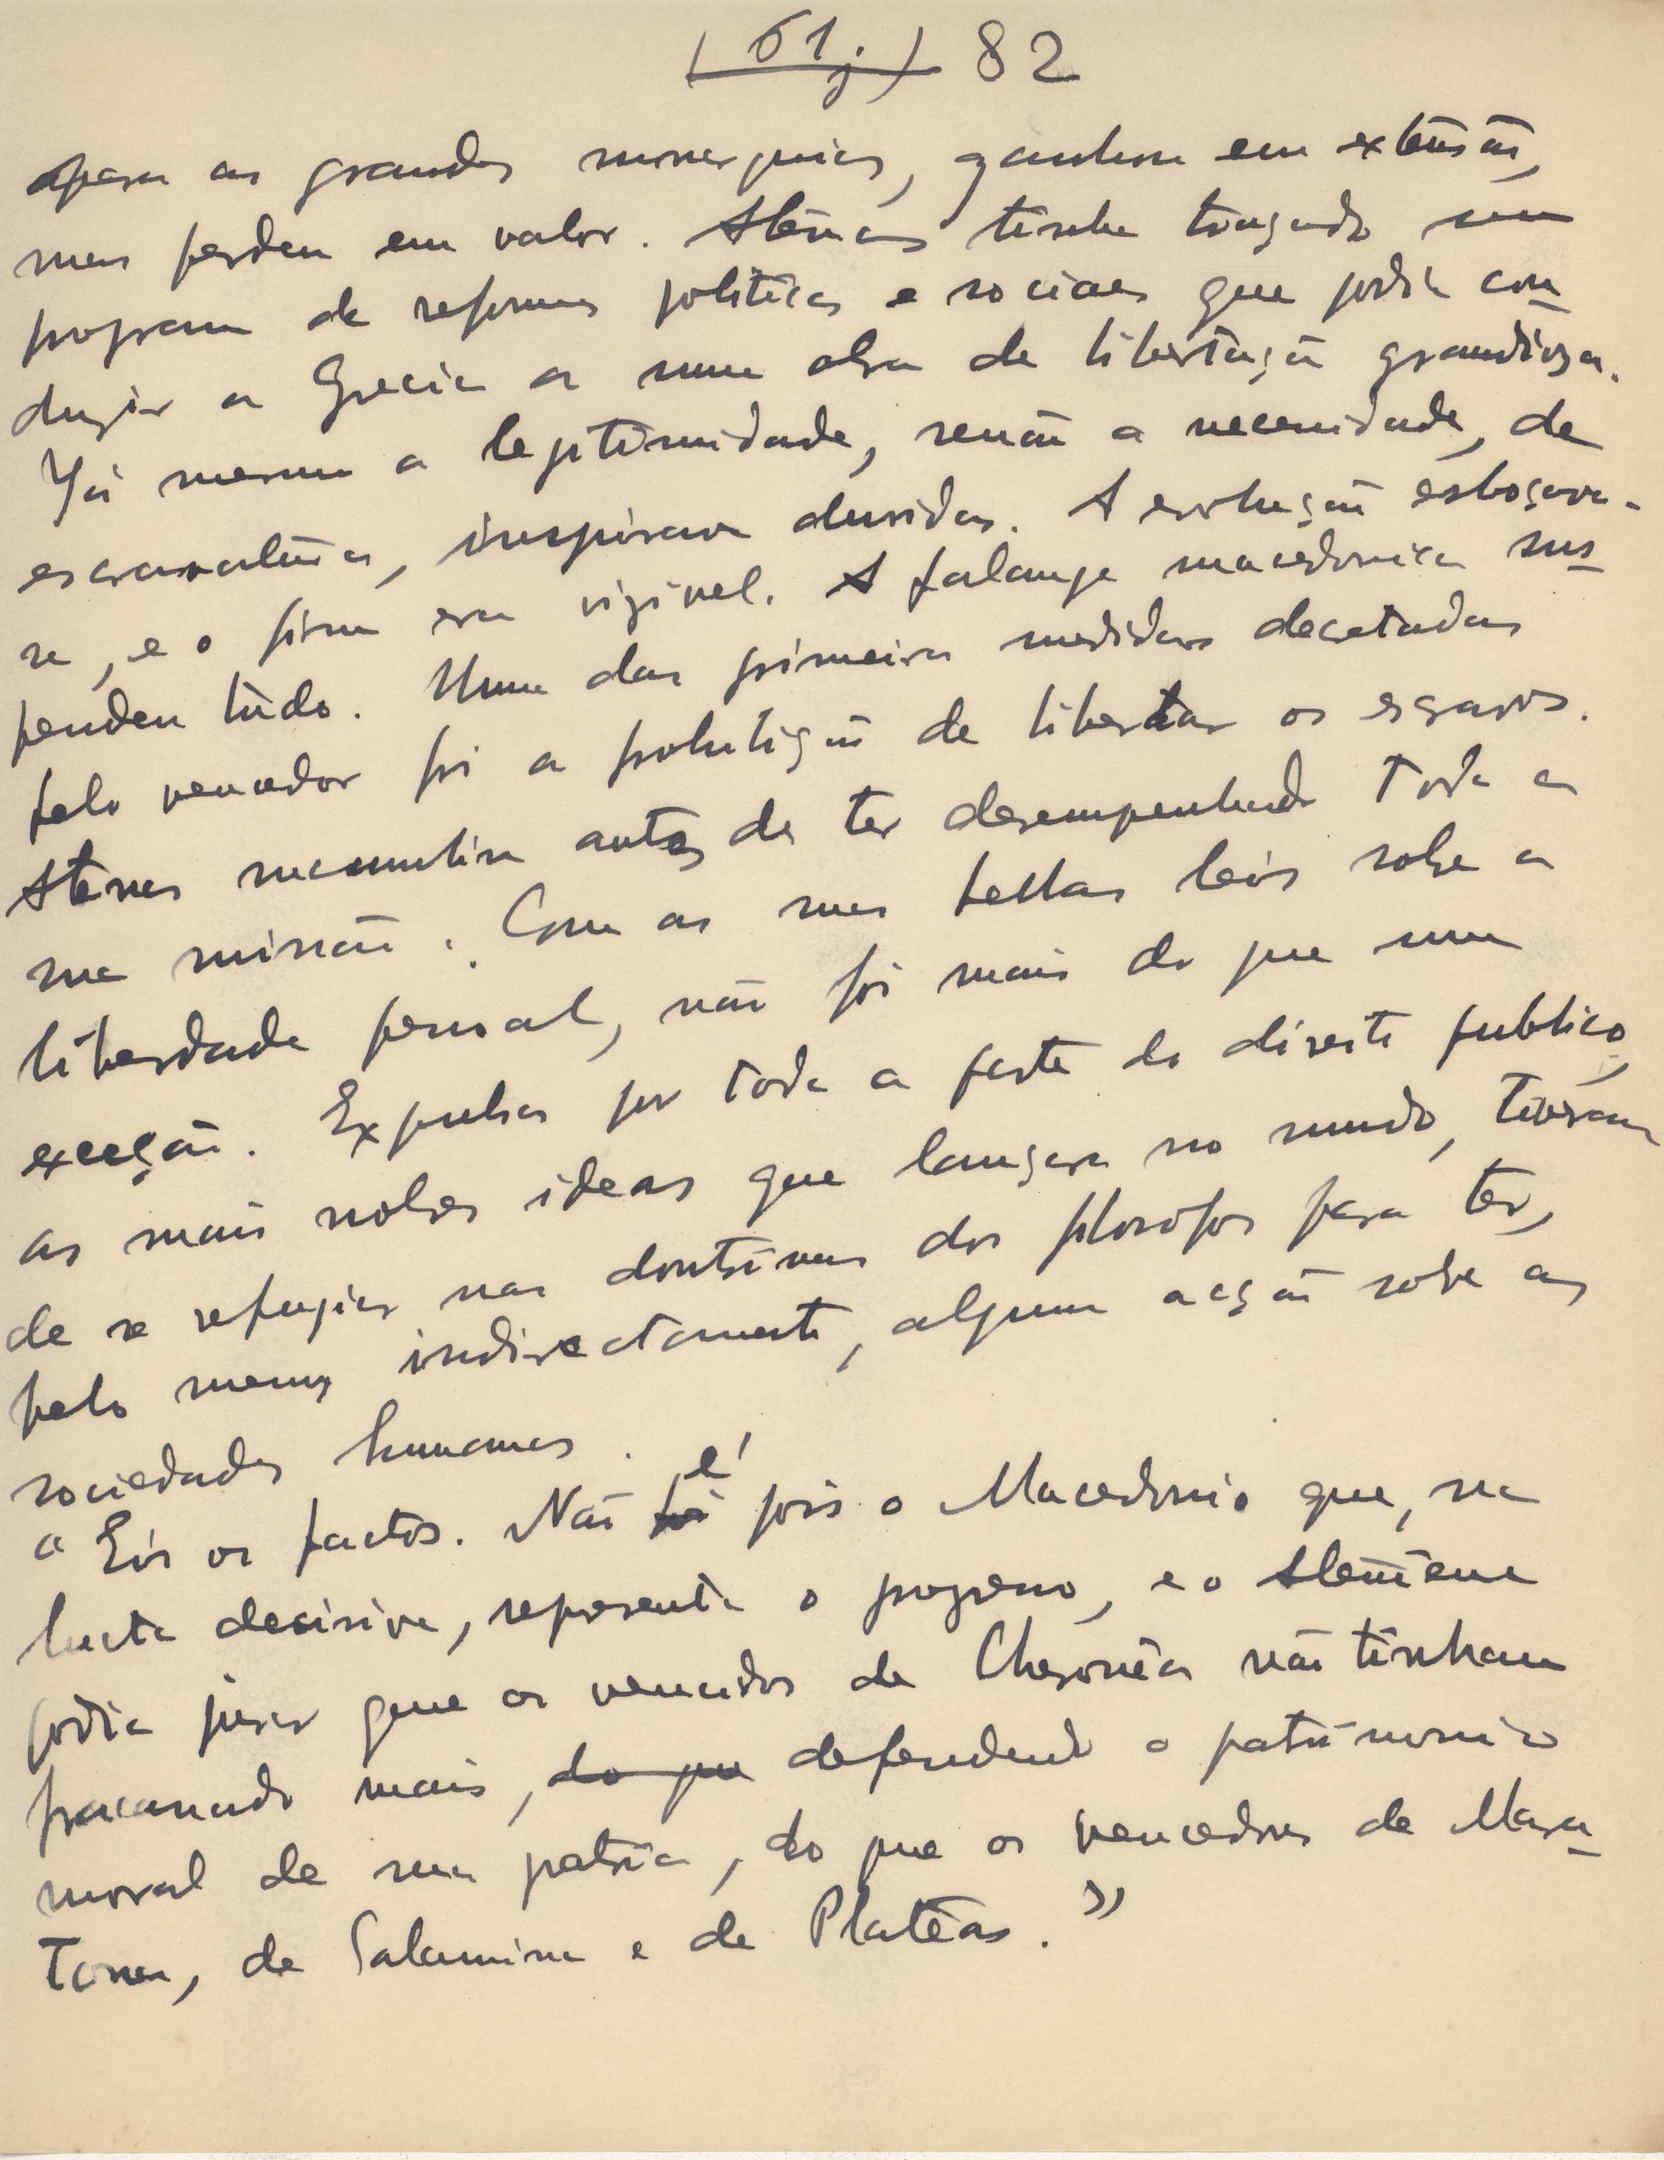 (61.j) 82
para as grandes monarquias, ganhou em extensão,
mas perdeu em valor. Atenas tinha traçado um
program de reformas politicas e sociaes que podia con-
duzir a Grecia a uma obra de libertação grandioza.
Já mesmo a legitimidade, senão a necessidade, de
escravatura, inspirava duvidas. A evolução esboçava-
se, e o firm era vizivel. A falange macedonica sus-
pendeu tudo. Uma das primeiras medidas decretadas
pelo vencedor foi a prohibição de libertar os escravos.
Atenas sucumbira antes de ter desempenhado toda a
sua missão. Com as suas bellas leis sobre a
liberdade pessoal, não foi mais do que uma
exceção. Expulsas por toda a parte do direito publico,
as mais nobres ideas que lançara no mundo, tiveram
de se refugiar nas doutrinas dos filosofos para ter,
pelo menos indirectamente, alguma acção sobre as
sociedades humanas.
"Eis os factos. Não foi é pois o Macedonio que, na
lucta decisiva, representa o progresso, e o Ateniense
podia jurar que os vencidos de Cheronéa não tinham
fracassado mais, do que defendendo o patrimonio
moral de sua patria, do que os vencedores de Mara-
tona, de Salamina e de Platéas."